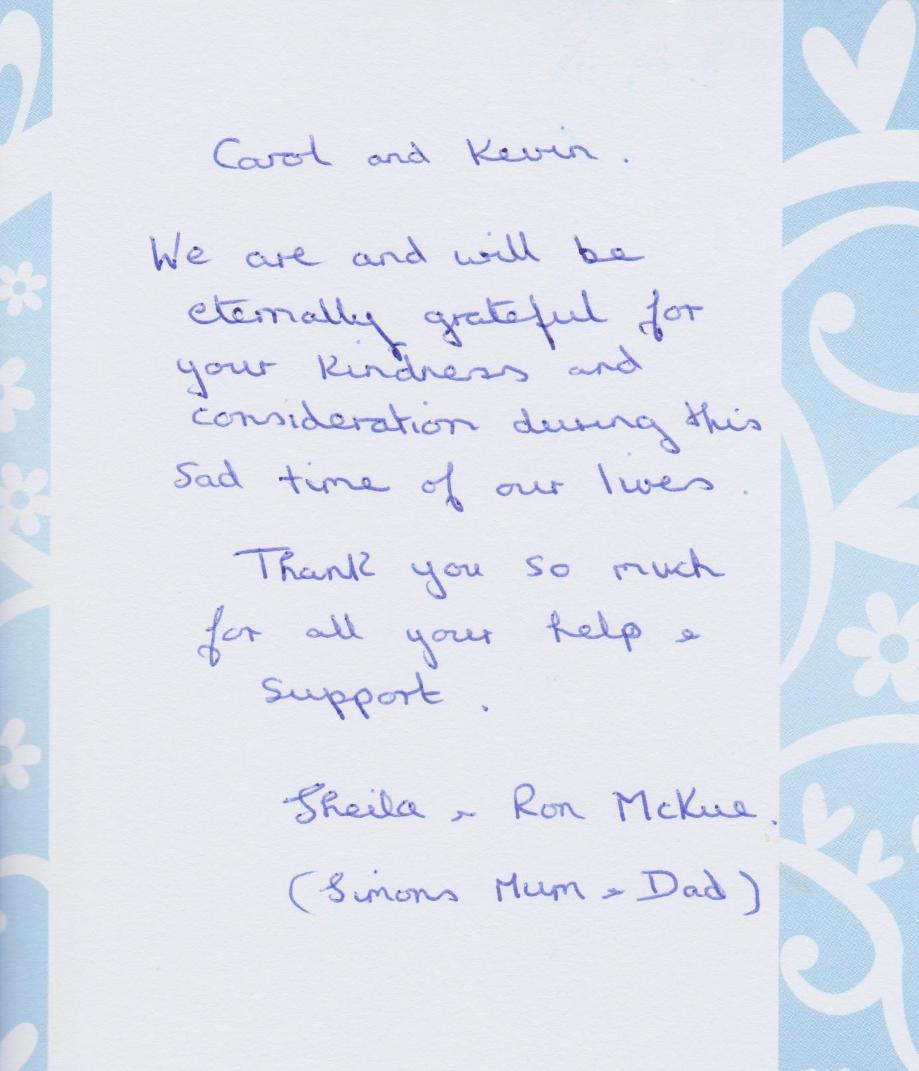 Carol and Kevin.
We are and will be
eternally grateful for
your kindness and
consideration during this
sad time of our lives.
Thank you so much
for all your help &
support.
Sheila & Ron McKue.
(Simons Mum & Dad)